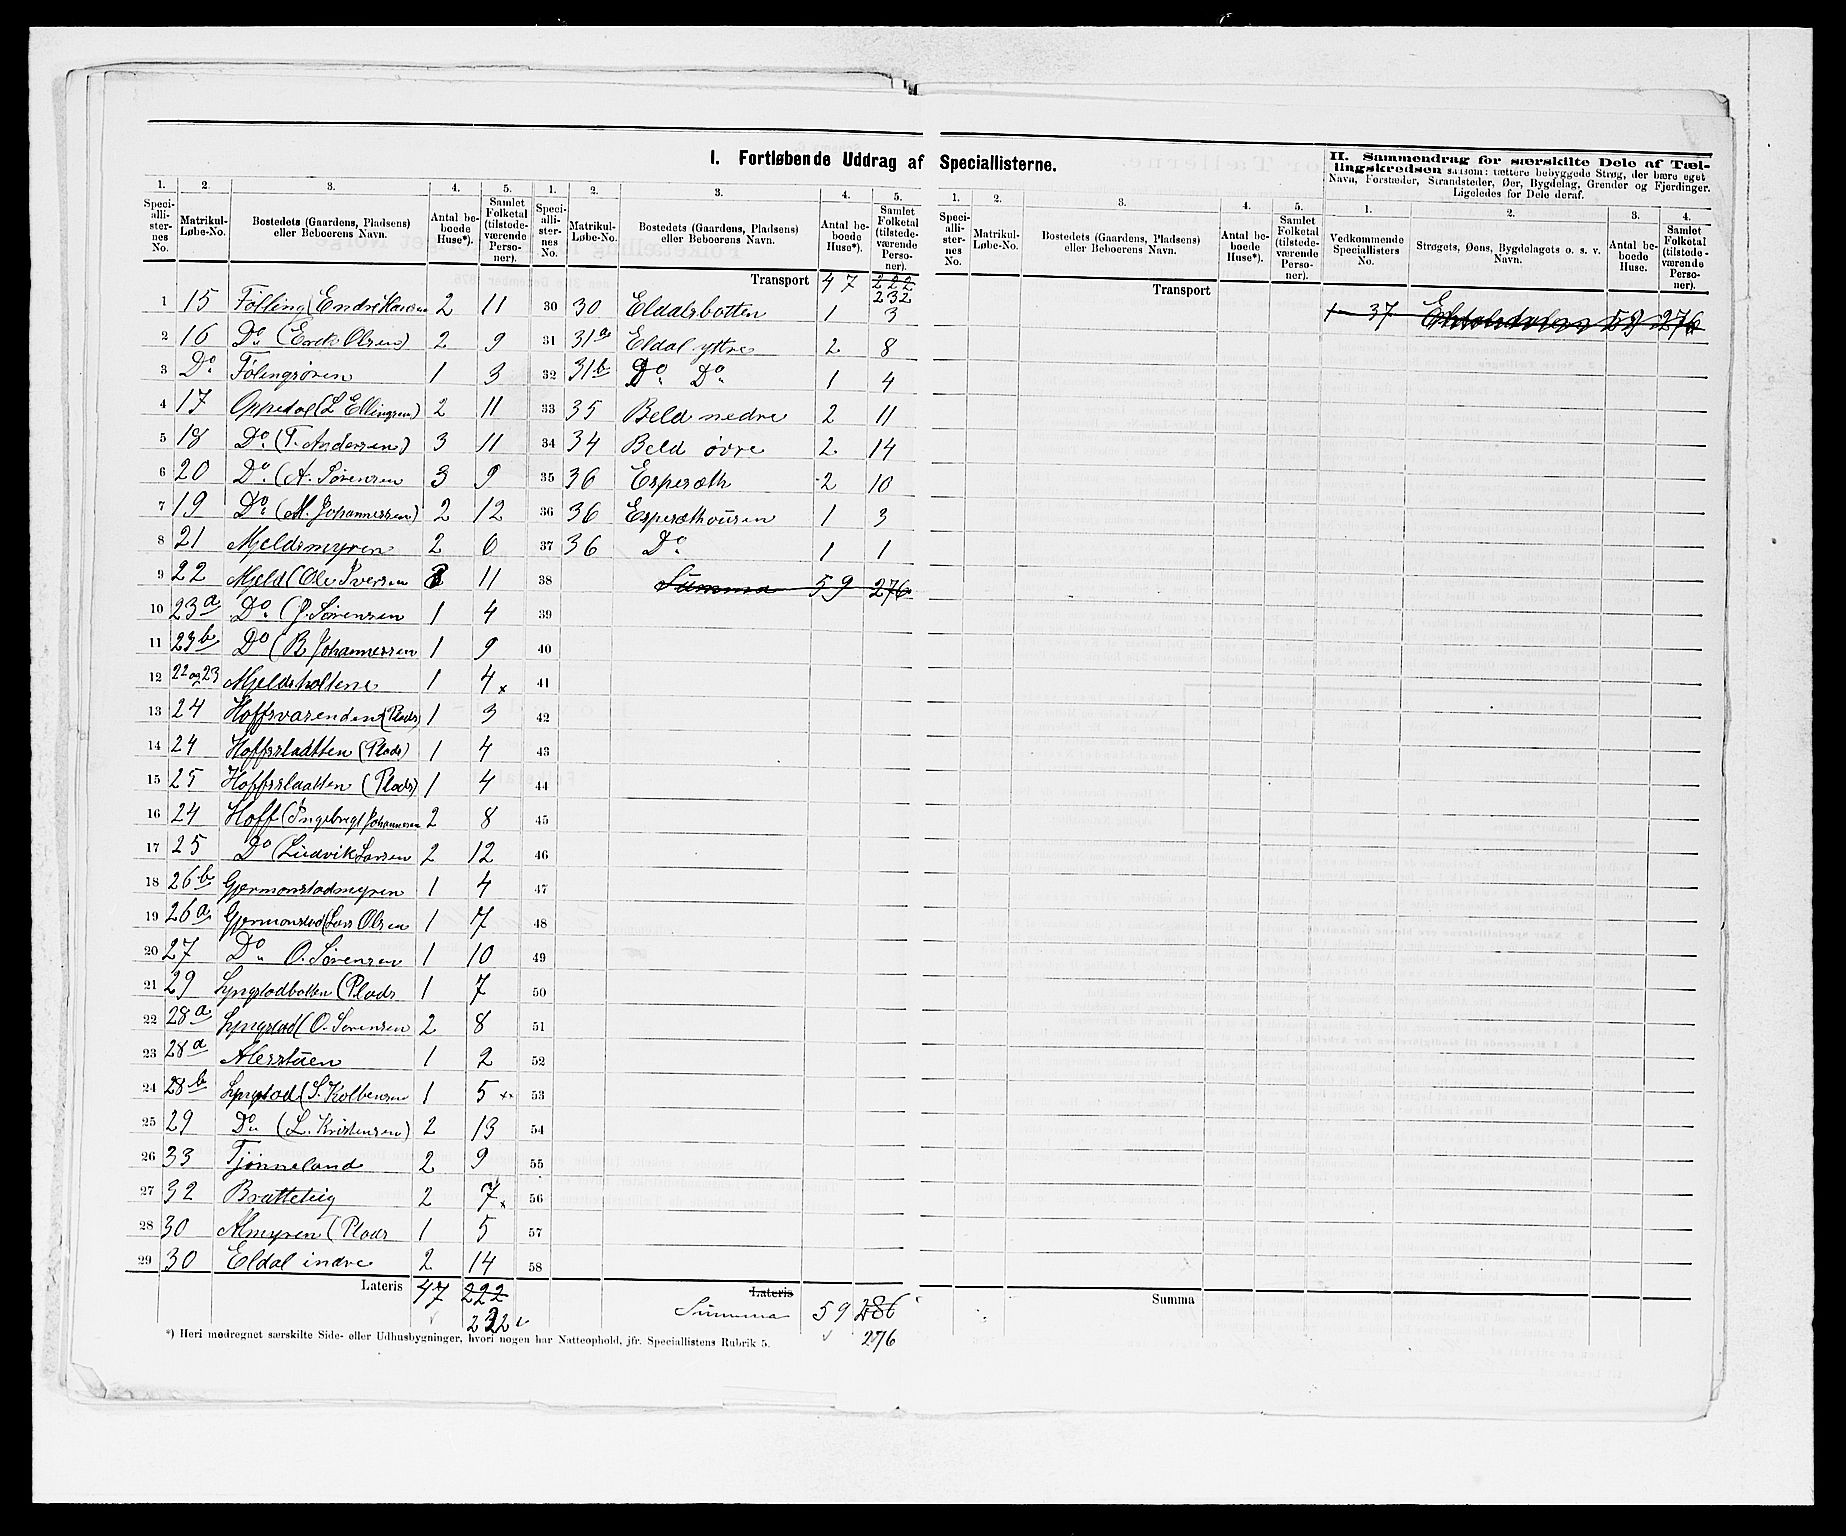 I. Fortløbende Uddrag af Speciallisterne.
II. Sammendrag for særskilte Dele af Tællingskredsen saasom: tættere bebyggede Strøg, der bære eget Navn, Forstæder, Strandsteder, Øer, Bygdelag, Grender og Fjerdinger. Ligeledes for Dele deraf.
1. 2. 3. 4. 5. 1. 2. 3. 4. 5. 1. 2. 3. 4. 5. 1. 2. 3. 4.
Speciallisternes No. Matrikul-Løbe-No. Bostedets (Gaardens, Pladsens) eller Beboerens Navn. Antal beboede Huse*). Samlet Folketal (tilstedeværende Personer).
Speciallisternes No. Matrikul-Løbe-No. Bostedets (Gaardens, Pladsens) eller Beboerens Navn. Antal beboede Huse*). Samlet Folketal (tilstedeværende Personer).
Speciallisternes No. Matrikul-Løbe-No. Bostedets (Gaardens, Pladsens) eller Beboerens Navn. Antal beboede Huse*). Samlet Folketal (tilstedeværende Personer).
Vedkommende Speciallisters No. Strøgets, Øens, Bygdelagets o. s. v. Navn. Antal beboede Huse. Samlet Folketal (tilstedeværende Personer).
1 15 Følling (Endre Hansen 2 11
2 16 Do (Erik Olsen) 2 9
3 Do Følingsøren 1 3
4 17 Oppedal (L Ellingsen) 2 11
5 18 Do (T. Andersen) 3 11
6 20 Do (A. Sørensen 3 9
7 19 Do (M. Johannessen) 2 12
8 21 Mjeldsmyren 2 6
9 22 Mjeld (Ole Iversen 11
10 23a Do (J. Sørensen 1 4
11 23b Do (B. Johannessen 1 9
12 22 og 23 Mjeldsholtene 1 4 x
13 24 Hoffsvarenden (Plads) 1 3
14 24 Hoffsslaatten (Plads) 1 4
15 25 Hoffsslaatten (Plads) 1 4
16 24 Hoff (Ingebregt Johannesen 2 8
17 25 Do (Ludvik Larsen 2 12
18 26b Gjermonstadmyren 1 4
19 26a Gjermonstad (Lars Olsen 1 7
20 27 Do O. Sørensen 1 10
21 29 Lyngstadbotten (Plads 1 7
22 28a Lyngstad (O. Sørensen 2 8
23 28a Alersstuen 1 2
24 28b Lyngstad (S. Kolbensen 1 5 x
25 29 Do (L. Kristensen) 2 13
26 33 Tjønneland 2 9
27 32 Bratteteig 2 7 x
28 30 Almyren (Plads 1 5
29 30 Eldal indre 2 14
Lateris 47 222
232
Transport 47 222
232
30 30 Eldalsbotten 1 3
31 31a Eldal yttre 2 8
32 31b Do Do 1 4
33 35 Beld nedre 2 11
34 34 Beld øvre 2 14
35 36 Esperæth 2 10
36 36 Esperæthousen 1 3
37 36 Do 1 1
38 Summa 59 276
39
40
41
42
43
44
45
46
47
48
49
50
51
52
53
54
55
56
57
58
Lateris
Summa 59 286
276
Transport
Summa
1-37 59 276
*) Heri medregnet særskilte Side- eller Udhusbygninger, hvori nogen har Natteophold, jfr. Speciallistens Rubrik 5.